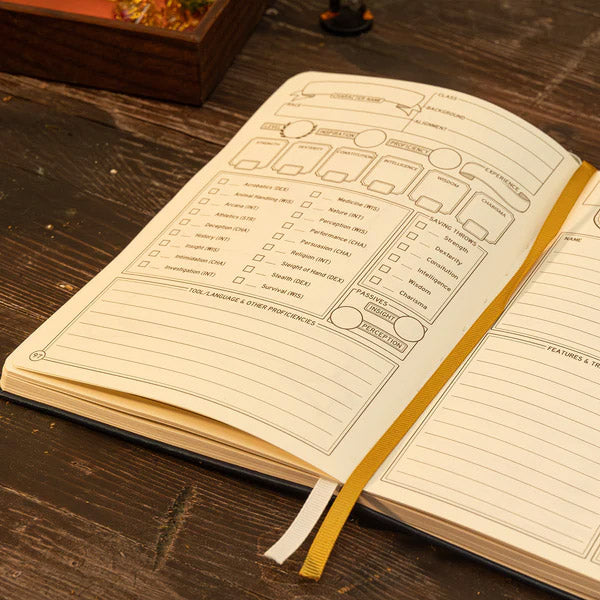 CHARACTER NAME
CLASS
RACE
BACKGROUND
ALIGNMENT
LEVEL
INSPIRATION
PROFICIENCY
EXPERIENCE
STRENGTH
DEXTERITY
CONSTITUTION
INTELLIGENCE
WISDOM
CHARISMA
Acrobatics (DEX)
Animal Handling (WIS)
Arcana (INT)
Athletics (STR)
Deception (CHA)
History (INT)
Insight (WIS)
Intimidation (CHA)
Investigation (INT)
Medicine (WIS)
Nature (INT)
Perception (WIS)
Performance (CHA)
Persuasion (CHA)
Religion (INT)
Sleight of Hand (DEX)
Stealth (DEX)
Survival (WIS)
SAVING THROWS
Strength
Dexterity
Constitution
Intelligence
Wisdom
Charisma
PASSIVES
INSIGHT
PERCEPTION
TOOL/LANGUAGE & OTHER PROFICIENCIES
97
NAME
FEATURES & TR